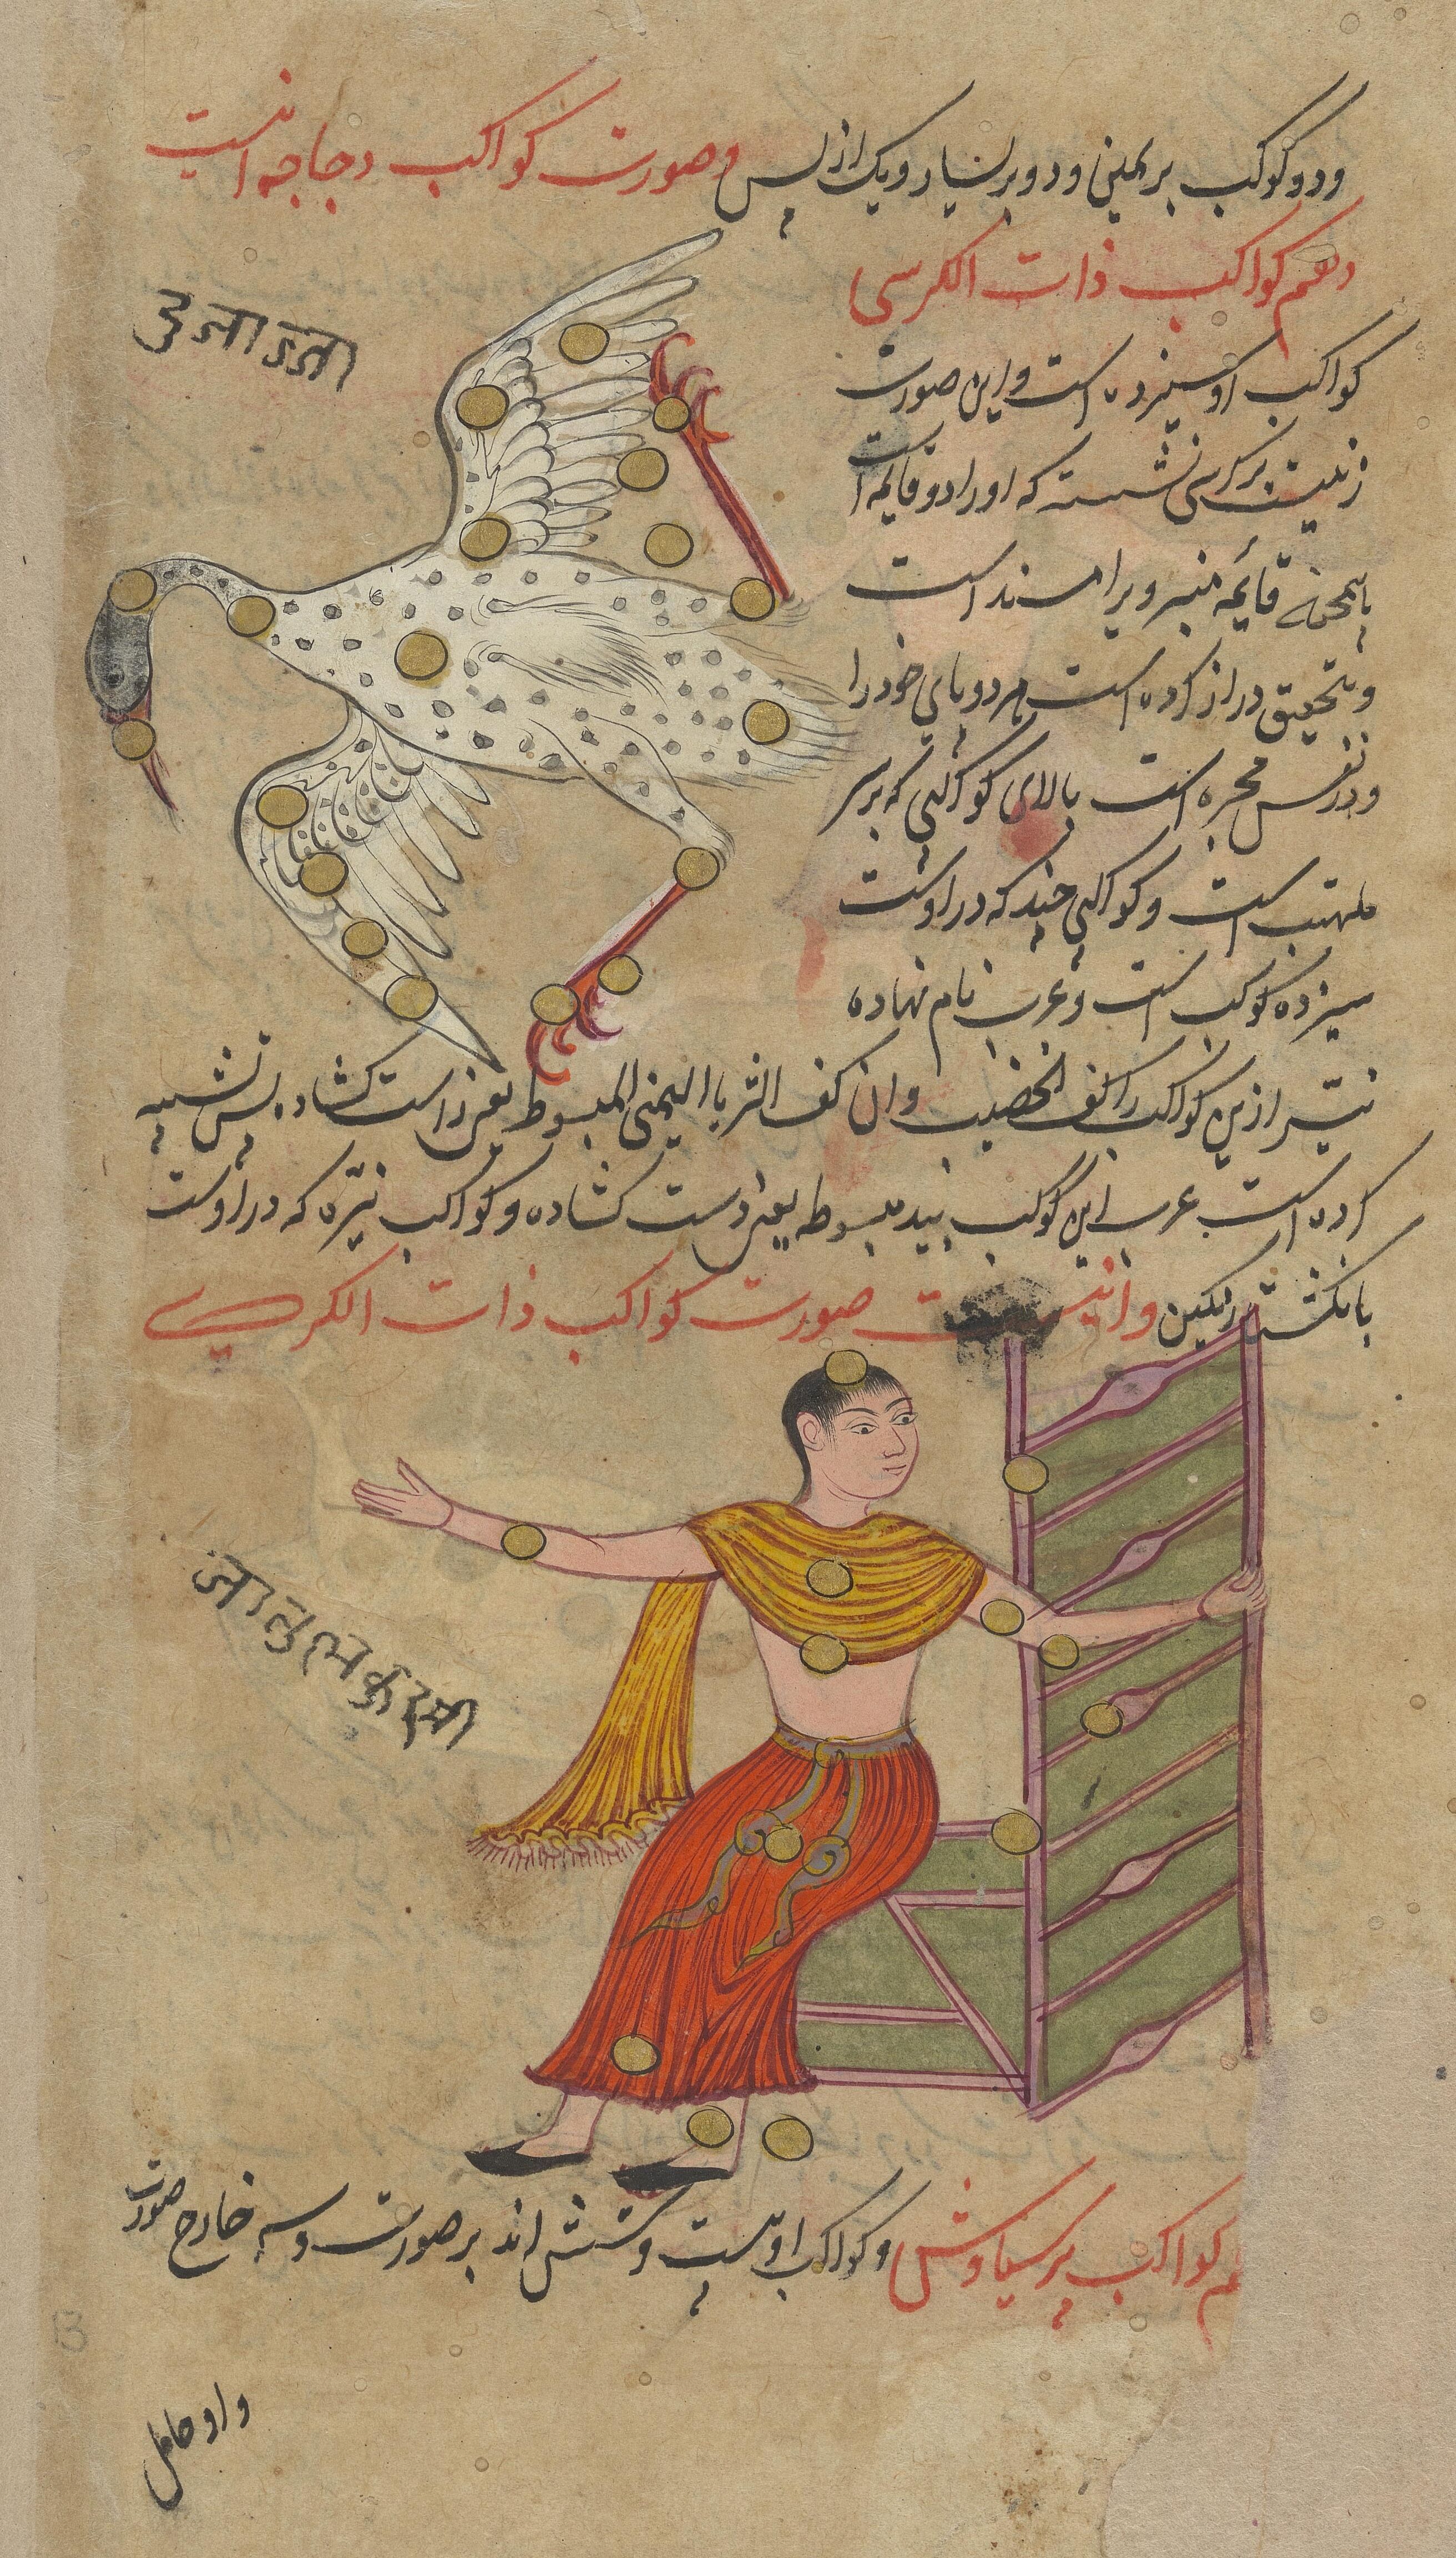 ودو کوکب بر یمین و دو بر یسار و یک از پس و صورت کواکب دجاجه اینست
दुजाज्जा
دهم کواکب ذات الکرسی
کواکب او سیزده است و این صورت
زنیست بر کرسی نشسته که او را دو قایمه است
همچو قایمه منبر و برا مسند است
و بتحقیق دراز کرده است هر دو پای خود را
و در نفس مجره است بالای کواکبی که بر سر
ملتهب است و کواکبی چند که در اوست
سیزده کوکب است و عرب نام نهاده
نیر ازین کواکب را کف الخضیب و ان کف الثریا الیمنی المبسوط یعنی دست کشاده پس تشبیه
کرده است عرب این کوکب بید مبسوطه یعنی دست کشاده و کواکب نیره که در اوست
بانکشت رنکین و اینست صورت کواکب ذات الکرسی
जातलकुरसी
کواکب برسیاوش و کواکب او بیست و شش اند بر صورت و سه خارج صورت
و او حامل
13